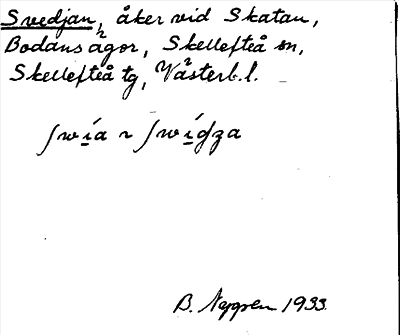 Svedjan, åker vid Skatan,
Bodans ägor, Skellefteå sn,
Skellefteå tg, Västerb. l.
B. 1933.